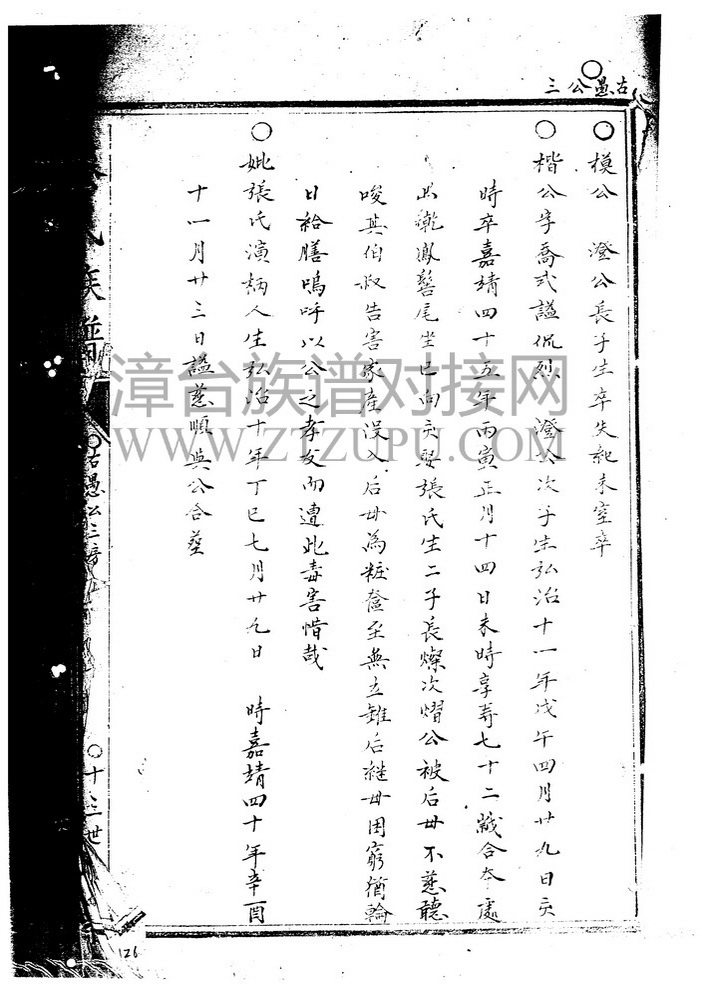 古愚公三
模公　澄公長子生卒失記未室卒
楷公字喬弍諡侃烈　澄公次子生弘治十一年戊午四月廿九日亥
時卒嘉靖四十五年丙寅正月十四日未時享壽七十二歲合本處
出乾鳳髻尾坐巳向亥娶張氏生二子長燦次熠公被后母不慈聽
唆其伯叔告害家產沒入后母為粧奩至無立錐后継母困窮猶輪
日給膳嗚呼以公之孝友而遭此毒害惜哉
妣張氏演柄人生弘治十年丁巳七月廿九日　時嘉靖四十年辛酉
十一月廿三日諡慈順與公合塟
氏族譜
古愚公三房
十三世
126
漳台族谱对接网
WWW.ZTZUPU.COM